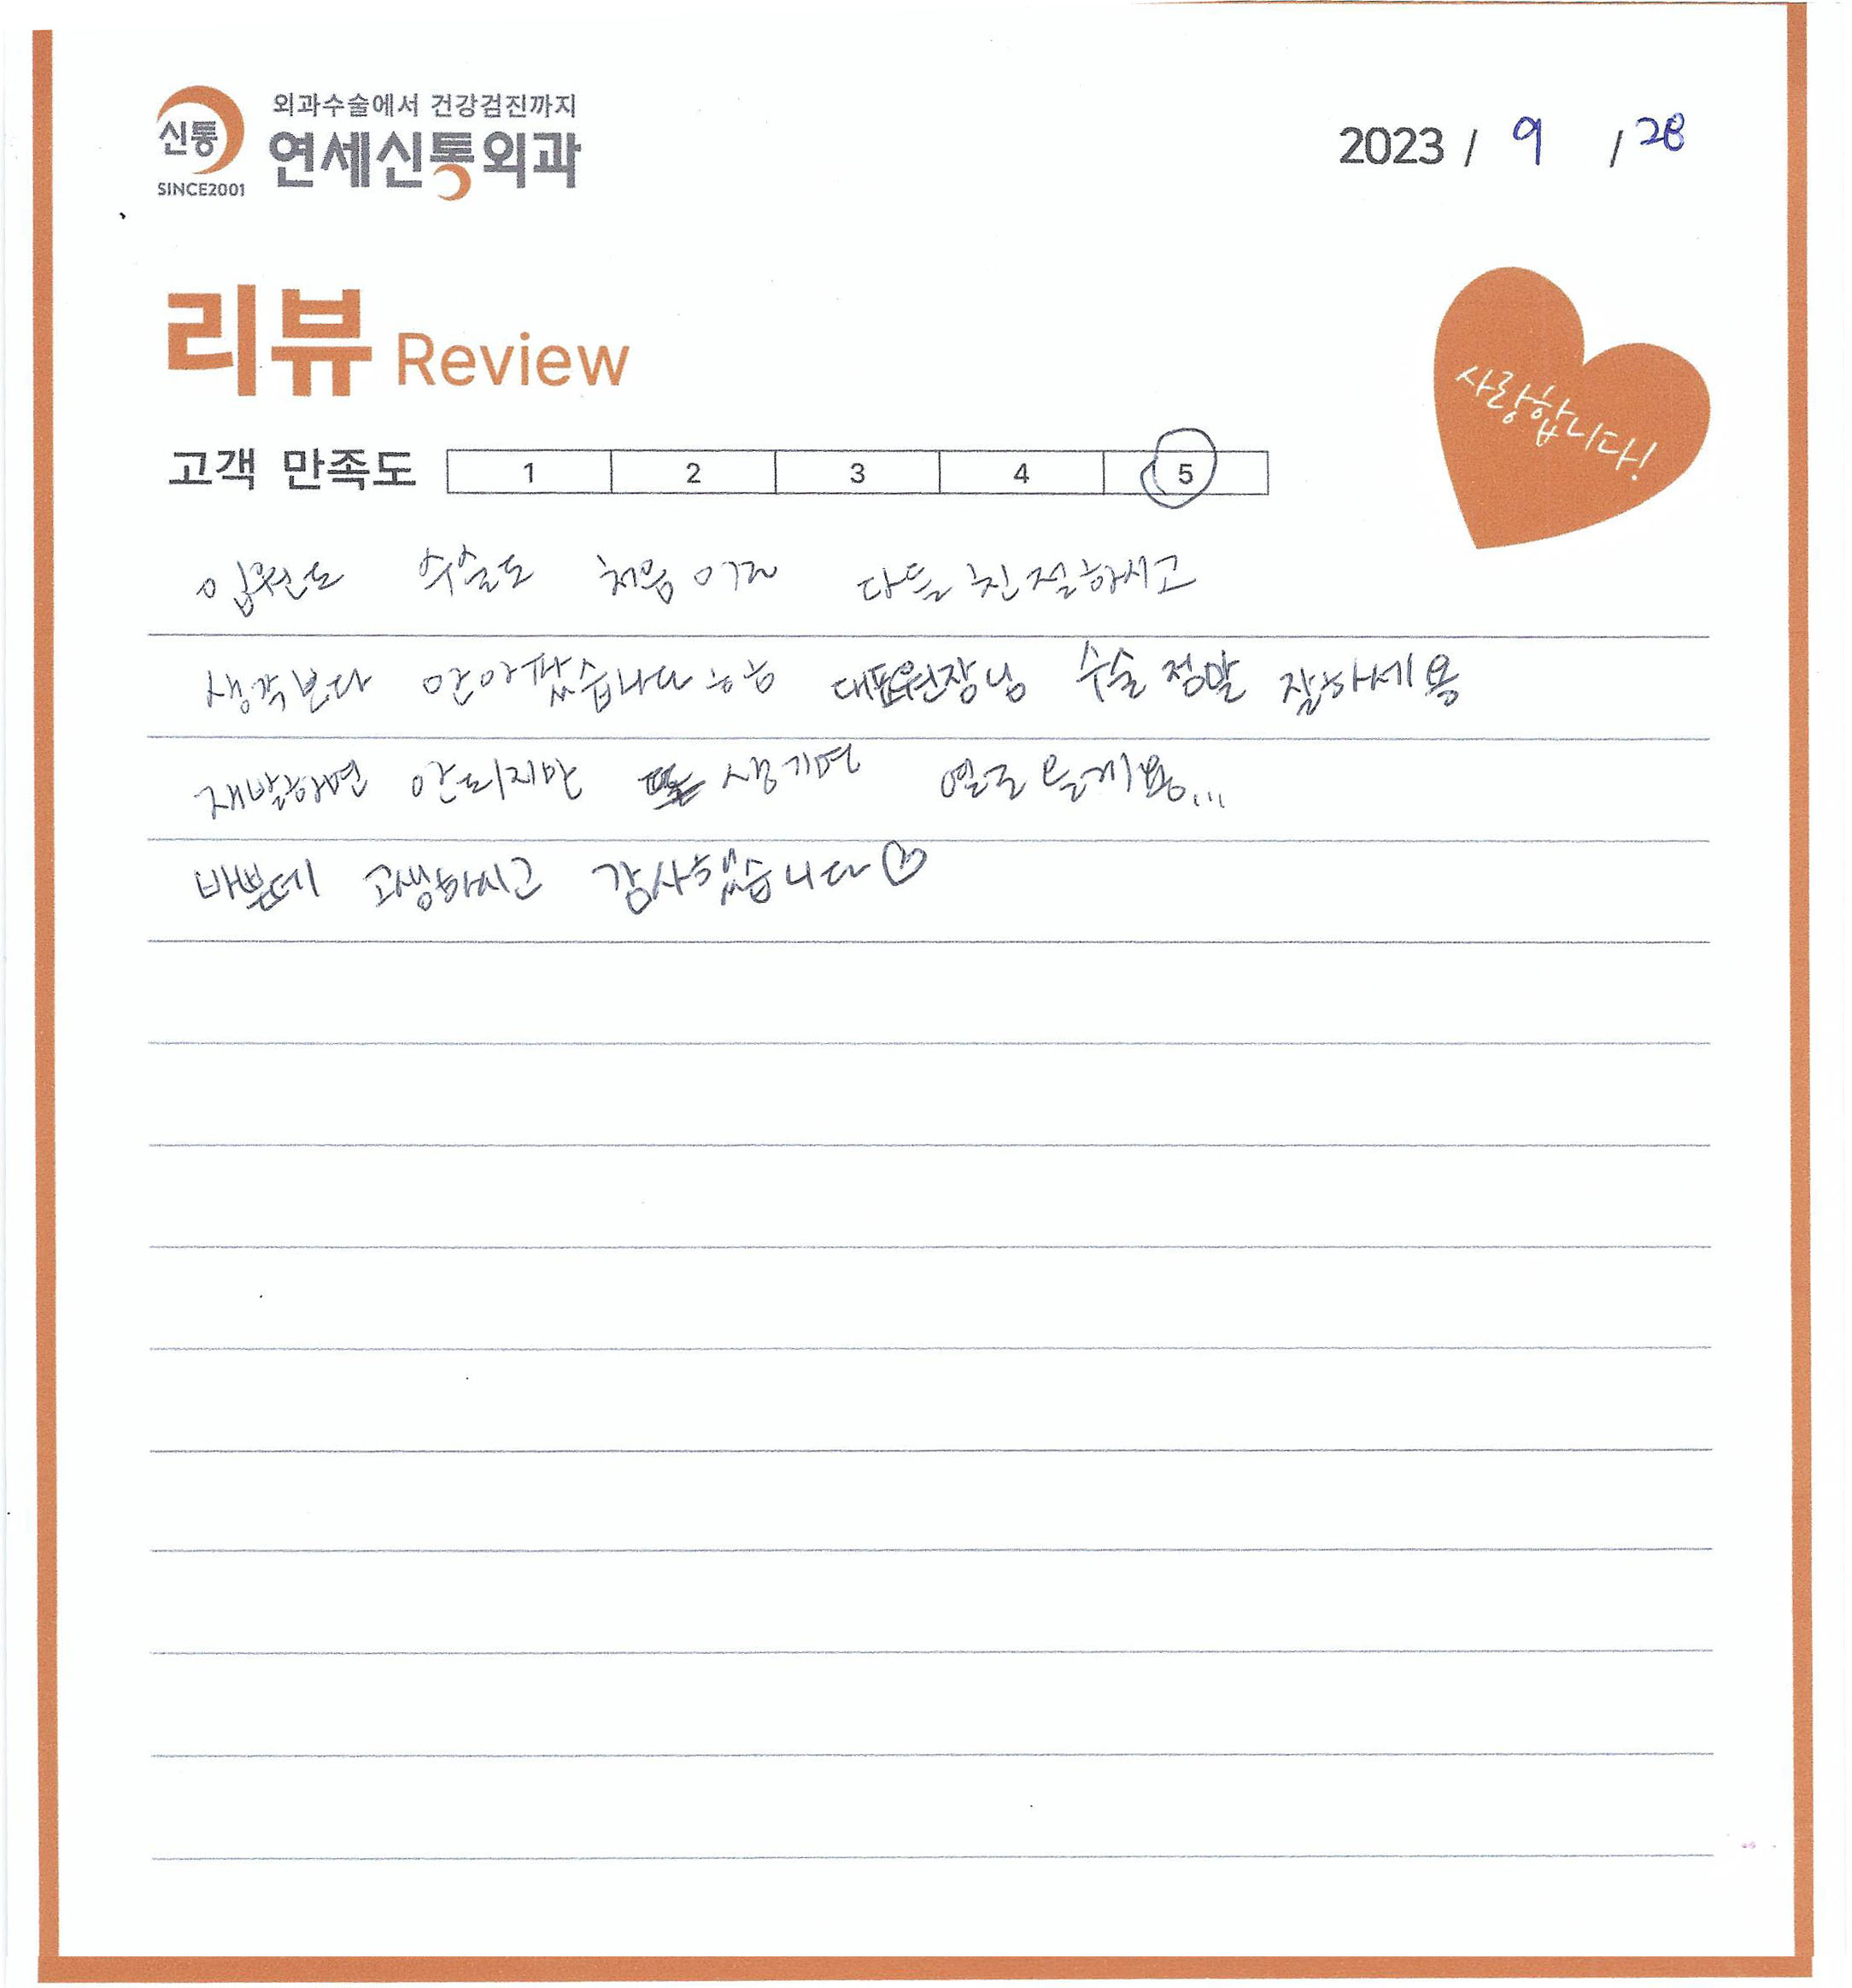 신통
SINCE2001
외과수술에서 건강검진까지
연세신통외과
2023 / 9 / 28
리뷰 Review
사랑합니다!
고객 만족도 1 2 3 4 5
입원도 수술도 처음이고 다들 친절하시고
생각보다 안아팠습니다 ㅎㅎ 대표원장님 수술 정말 잘하세용
재발하면 안되지만 또 생기면 일로 올게용...
바쁜데 고생하시고 감사했습니다♡